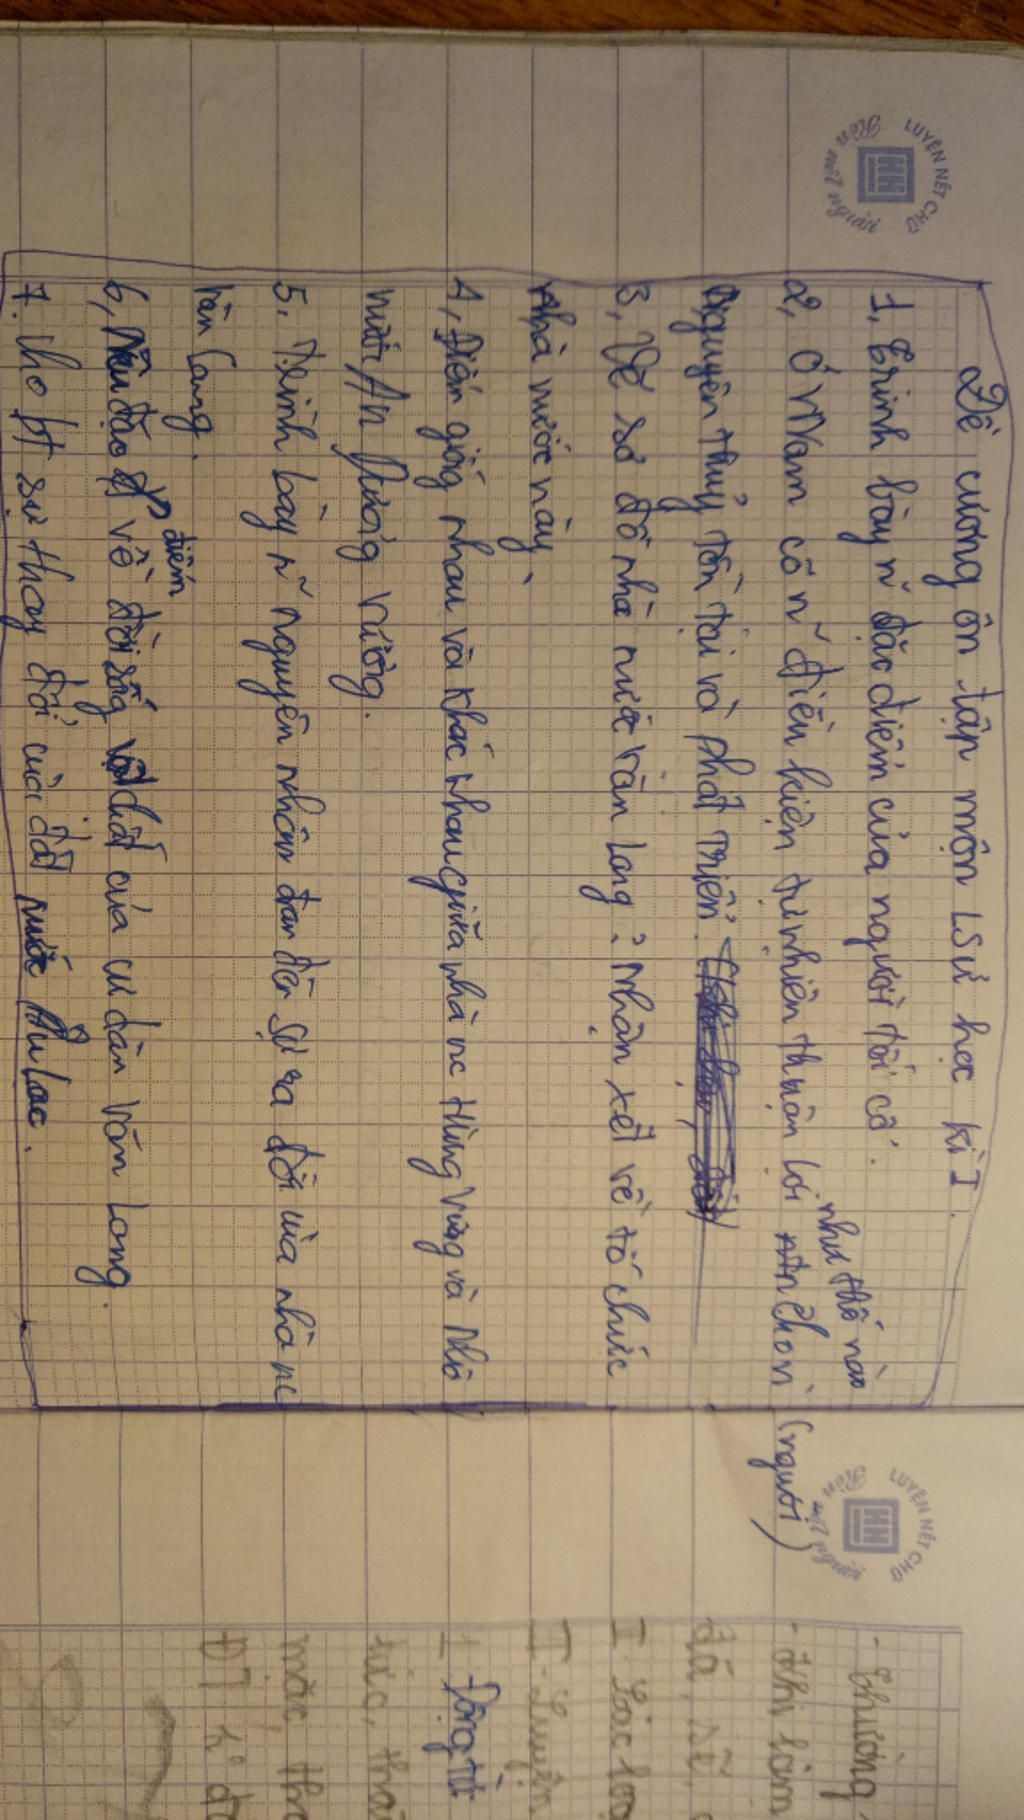 Đề cương ôn tập môn LSử học kì I.
1, Trình bày n~ đặc điểm của người tối cổ.
như thế nào
2, Ở VNam có n~ điều kiện tự nhiên thuận lợi cho n' (người)
Nguyên thuỷ tồn tại và phát triển.
3, Vẽ sơ đồ nhà nước Văn Lang? Nhận xét về tổ chức
nhà nước này.
4, Điểm giống nhau và khác nhau giữa nhà nc Hùng Vương và Nhà
nước An Dương Vương.
5, Trình bày n~ nguyên nhân dẫn đến sự ra đời của nhà nc
Văn Lang.
điểm
6, Nêu đặc về đời sống vật chất của cư dân Văn Lang.
7. Cho bt sự thay đổi của đất nước Âu Lạc.
LUYỆN NÉT CHỮ
Rèn nết người
LUYỆN NÉT CHỮ
Rèn nết người
- Thường
- thị
đã, sẽ,
I
I. Luyện
1 Động từ
tức,
mặc,
ĐT